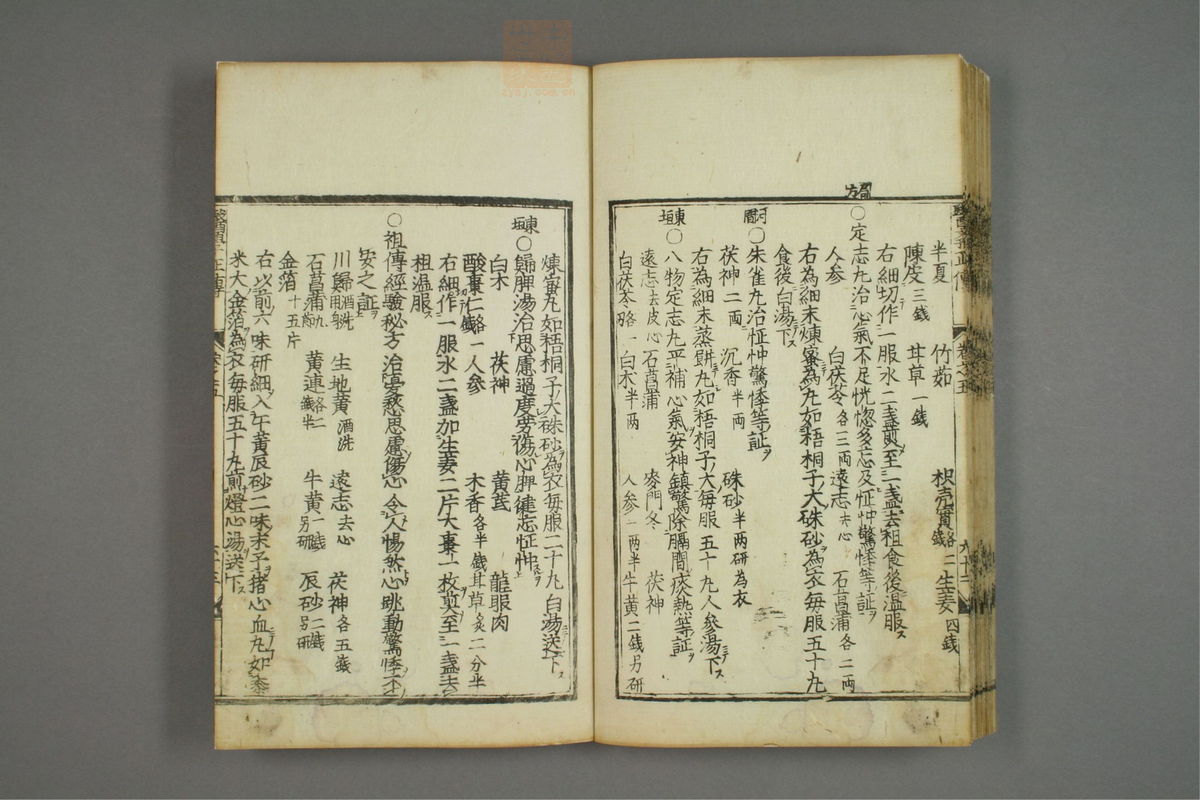 半夏 竹茹 枳壳 各二錢 生姜 四錢
陳皮 三錢 甘草 一錢
右細切作一服水二盞煎至一盞去柤食後溫服ス
局方
○定志丸治心氣不足恍惚多忘及怔忡驚悸等証ヲ
人参 白茯苓 各三両 遠志 去心 石菖蒲 各二両
右為細末煉蜜為丸如梧桐子大硃砂為衣每服五十丸
食後白湯下ス
河間
○朱雀丸治怔忡驚悸等証ヲ
茯神 二両 沉香 半両 硃砂 半両研為衣
右為細末蒸餅丸如梧桐子大每服五十丸人參湯下ス
東垣
○八物定志丸平補心氣安神鎮驚除膈間痰熱等証ヲ
遠志 去皮心 石菖蒲 麥門冬 茯神
白茯苓 各一両 白木 半両 人参 一両半 牛黄 二錢另研
煉蜜丸如梧桐子大硃砂為衣每服二十丸白湯送下ス
東垣
○歸脾湯治思慮過度勞傷心脾健忘怔忡
白木 茯神 黄芪 龍眼肉
酸棗仁 各一錢 人參 木香 各半錢 甘草 炙二分半
右細作一服水二盞加生姜三片大棗一枚煎至一盞去
柤溫服ス
○祖傳經驗秘方 治憂愁思慮傷心令人惕然心跳動驚悸不
安之証ヲ
川歸 酒洗 生地黄 酒洗 遠志 去心 茯神 各五錢
石菖蒲 黄連 各二錢半 牛黄 一錢另研 辰砂 二錢另研
金箔 十五片
右以前六味研細入牛黄辰砂二味末子猪心血丸如黍
米大金箔為衣每服五十丸煎燈心湯送下ス
zysj.com.cn